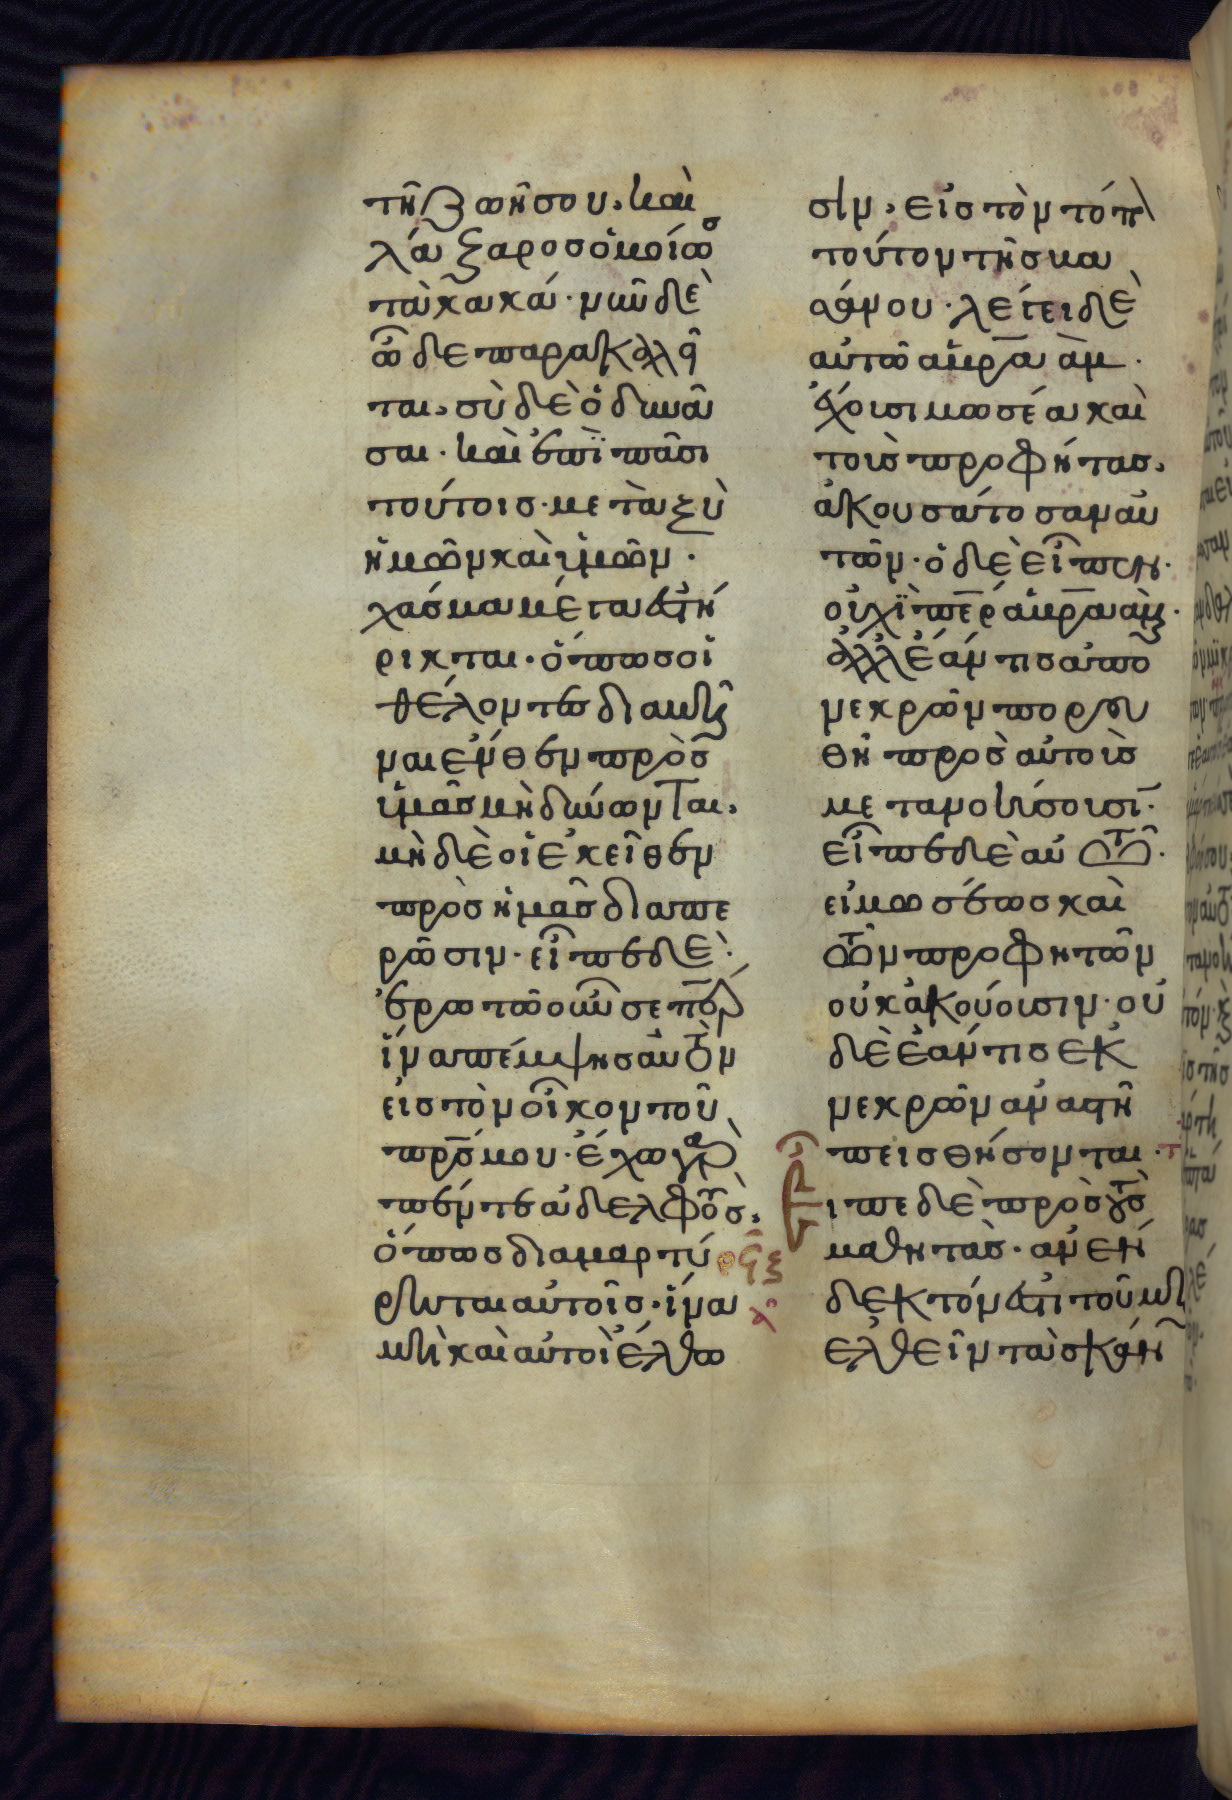 τῆ ζωῆ σου· καὶ
λάζαρος ὁμοίως
τὰ κακά· νῦν δὲ
ὧδε παρακαλεῖ
ται· σὺ δὲ ὀδυνᾶ
σαι· καὶ ἐπῒ πᾶσι
τούτοις· μεταξὺ
ἡμῶν καὶ ὑμῶν·
χάσμα μέγα ἐστή
ρικται· ὅπως οἱ
θέλοντες διαβῆ
ναι ἔνθεν πρὸς
ὑμᾶς μὴ δύνωνται·
μὴ δὲ οἱ ἐκεῖθεν
πρὸς ἡμᾶς διαπε
ρῶσιν· εἶπε δὲ·
ἐρωτῶ οὖν σε περ
ἵνα πέμψης αὐτὸν
εἰς τὸν οἶκον τοῦ
πρς μου· ἔχω γὰρ
πέντε ἀδελφοὺς·
ὅπως διαμαρτύ
ρηται αὐτοῖς· ἵνα
μὴ καὶ αὐτοὶ ἔλθω
σιν· εἰς τὸν τόπον
τοῦτον τῆς βα
σάνου· λέγει δὲ
αὐτῶ ἁβραὰμ·
ἔχουσι μωσέα καὶ
τοὺς προφήτας·
ἀκουσάτοσαν αὐ
τῶν· ὁ δὲ εἶπεν·
οὐχῒ περ ἁβραὰμ·
ἀλλ' ἐάν τις ἀπὸ
νεκρῶν πορευ
θῆ πρὸς αὐτοὺς
μετανοήσουσι·
εἶπε δὲ αὐτῶ·
εἰ μωσέως καὶ
τῶν προφητῶν
οὐκ ἀκούουσιν· οὐ
δὲ ἐάν τις ἐκ
νεκρῶν ἀναστῆ
πεισθήσονται·
Εἶπε δὲ πρὸς τοὺς
μαθητὰς· ἀνέν
δεκτόν ἐστι τοῦ μὴ
ἐλθεῖν τὰ σκάν